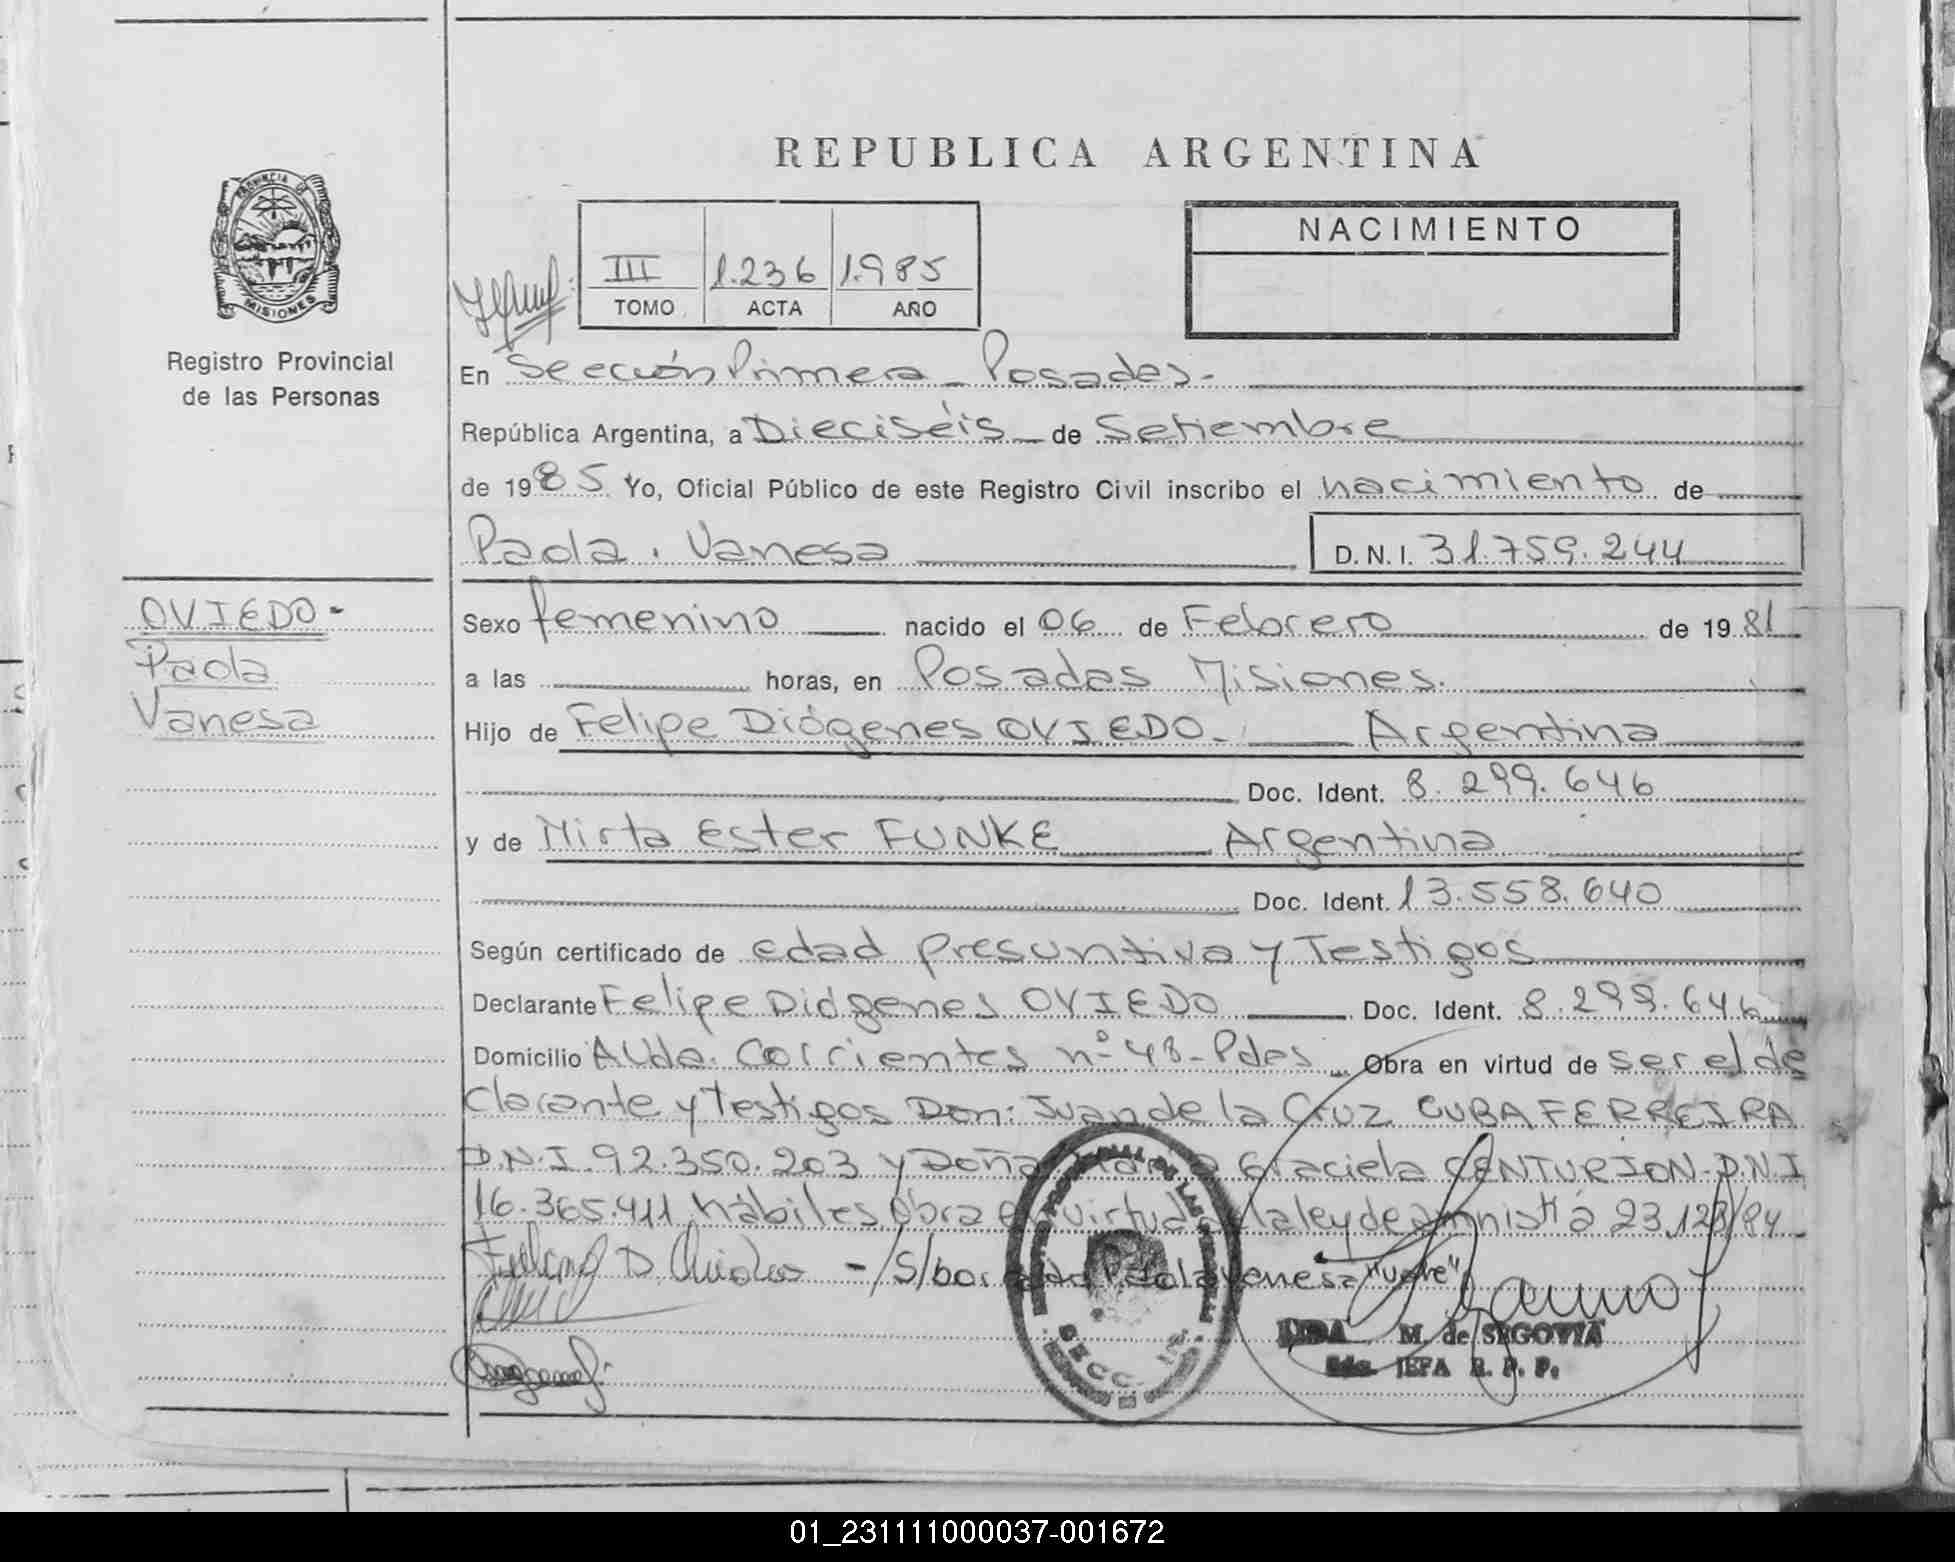 REPUBLICA ARGENTINA
PROVINCIA DE
MISIONES
Registro Provincial
de las Personas
III 1.236 1.985
TOMO ACTA AÑO
NACIMIENTO
En Sección Primera - Posadas.-
República Argentina, a Dieciséis de Setiembre
de 1985 Yo, Oficial Público de este Registro Civil inscribo el nacimiento de
Paola . Vanesa D.N.I. 31.759.244
OVIEDO-
Paola
Vanesa
Sexo femenino nacido el 06 de Febrero de 1981
a las horas, en Posadas Misiones.
Hijo de Felipe Diógenes OVIEDO. Argentina
Doc. Ident. 8.299.646
y de Mirta Ester FUNKE Argentina
Doc. Ident. 13.558.640
Según certificado de edad presuntiva y Testigos
Declarante Felipe Diógenes OVIEDO Doc. Ident. 8.299.646
Domicilio Avda. Corrientes nº 48-Pdas Obra en virtud de ser el de
clarante y Testigos Don: Juan de la Cruz CUBA FERREIRA
D.N.I. 92.350.203 y Doña Graciela CENTURION-D.N.I
16.365.411 hábiles Obra en virtud a la ley de amnistía 23.128/84
- /S/borrado Paola Vanesa "Vale"
SECC. 1ra.
M. de SEGOVIA
JEFA R. P. P.
01_231111000037-001672